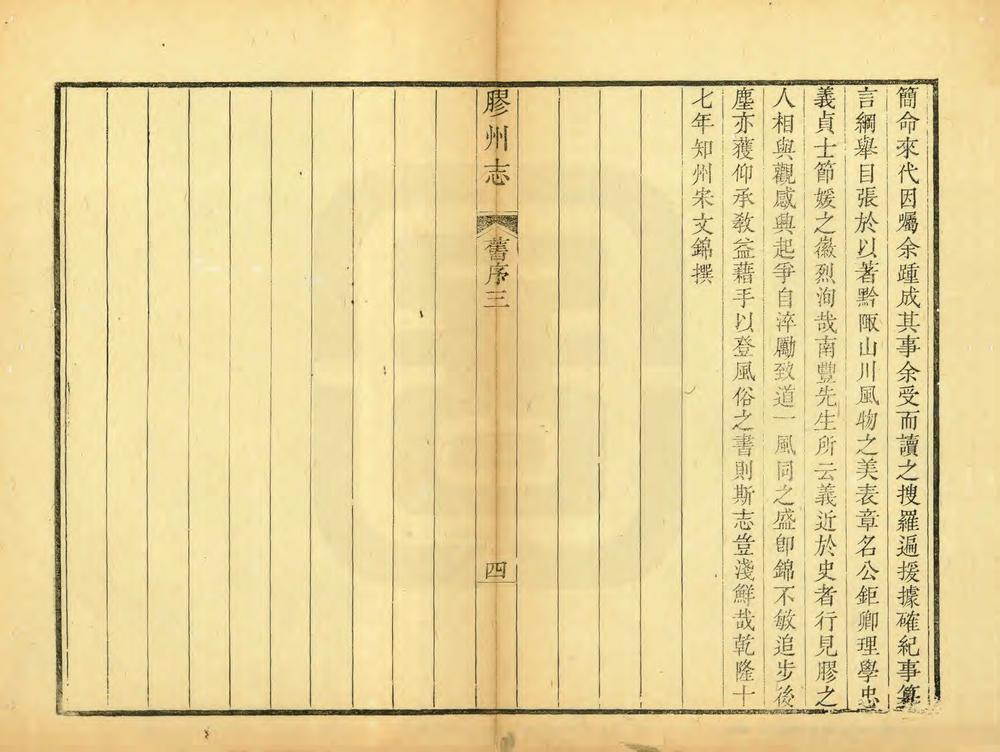 簡命來代因囑余踵成其事余受而讀之搜羅遍援據確紀事纂
言綱舉目張於以著黔陬山川風物之美表章名公鉅卿理學忠
義貞士節媛之徽烈洵哉南豐先生所云義近於史者行見膠之
人相與觀感興起爭自淬勵致道一風同之盛卽錦不敏追步後
塵亦獲仰承敎益藉手以登風俗之書則斯志豈淺鮮哉乾隆十
七年知州宋文錦撰
膠州志
舊序三
四